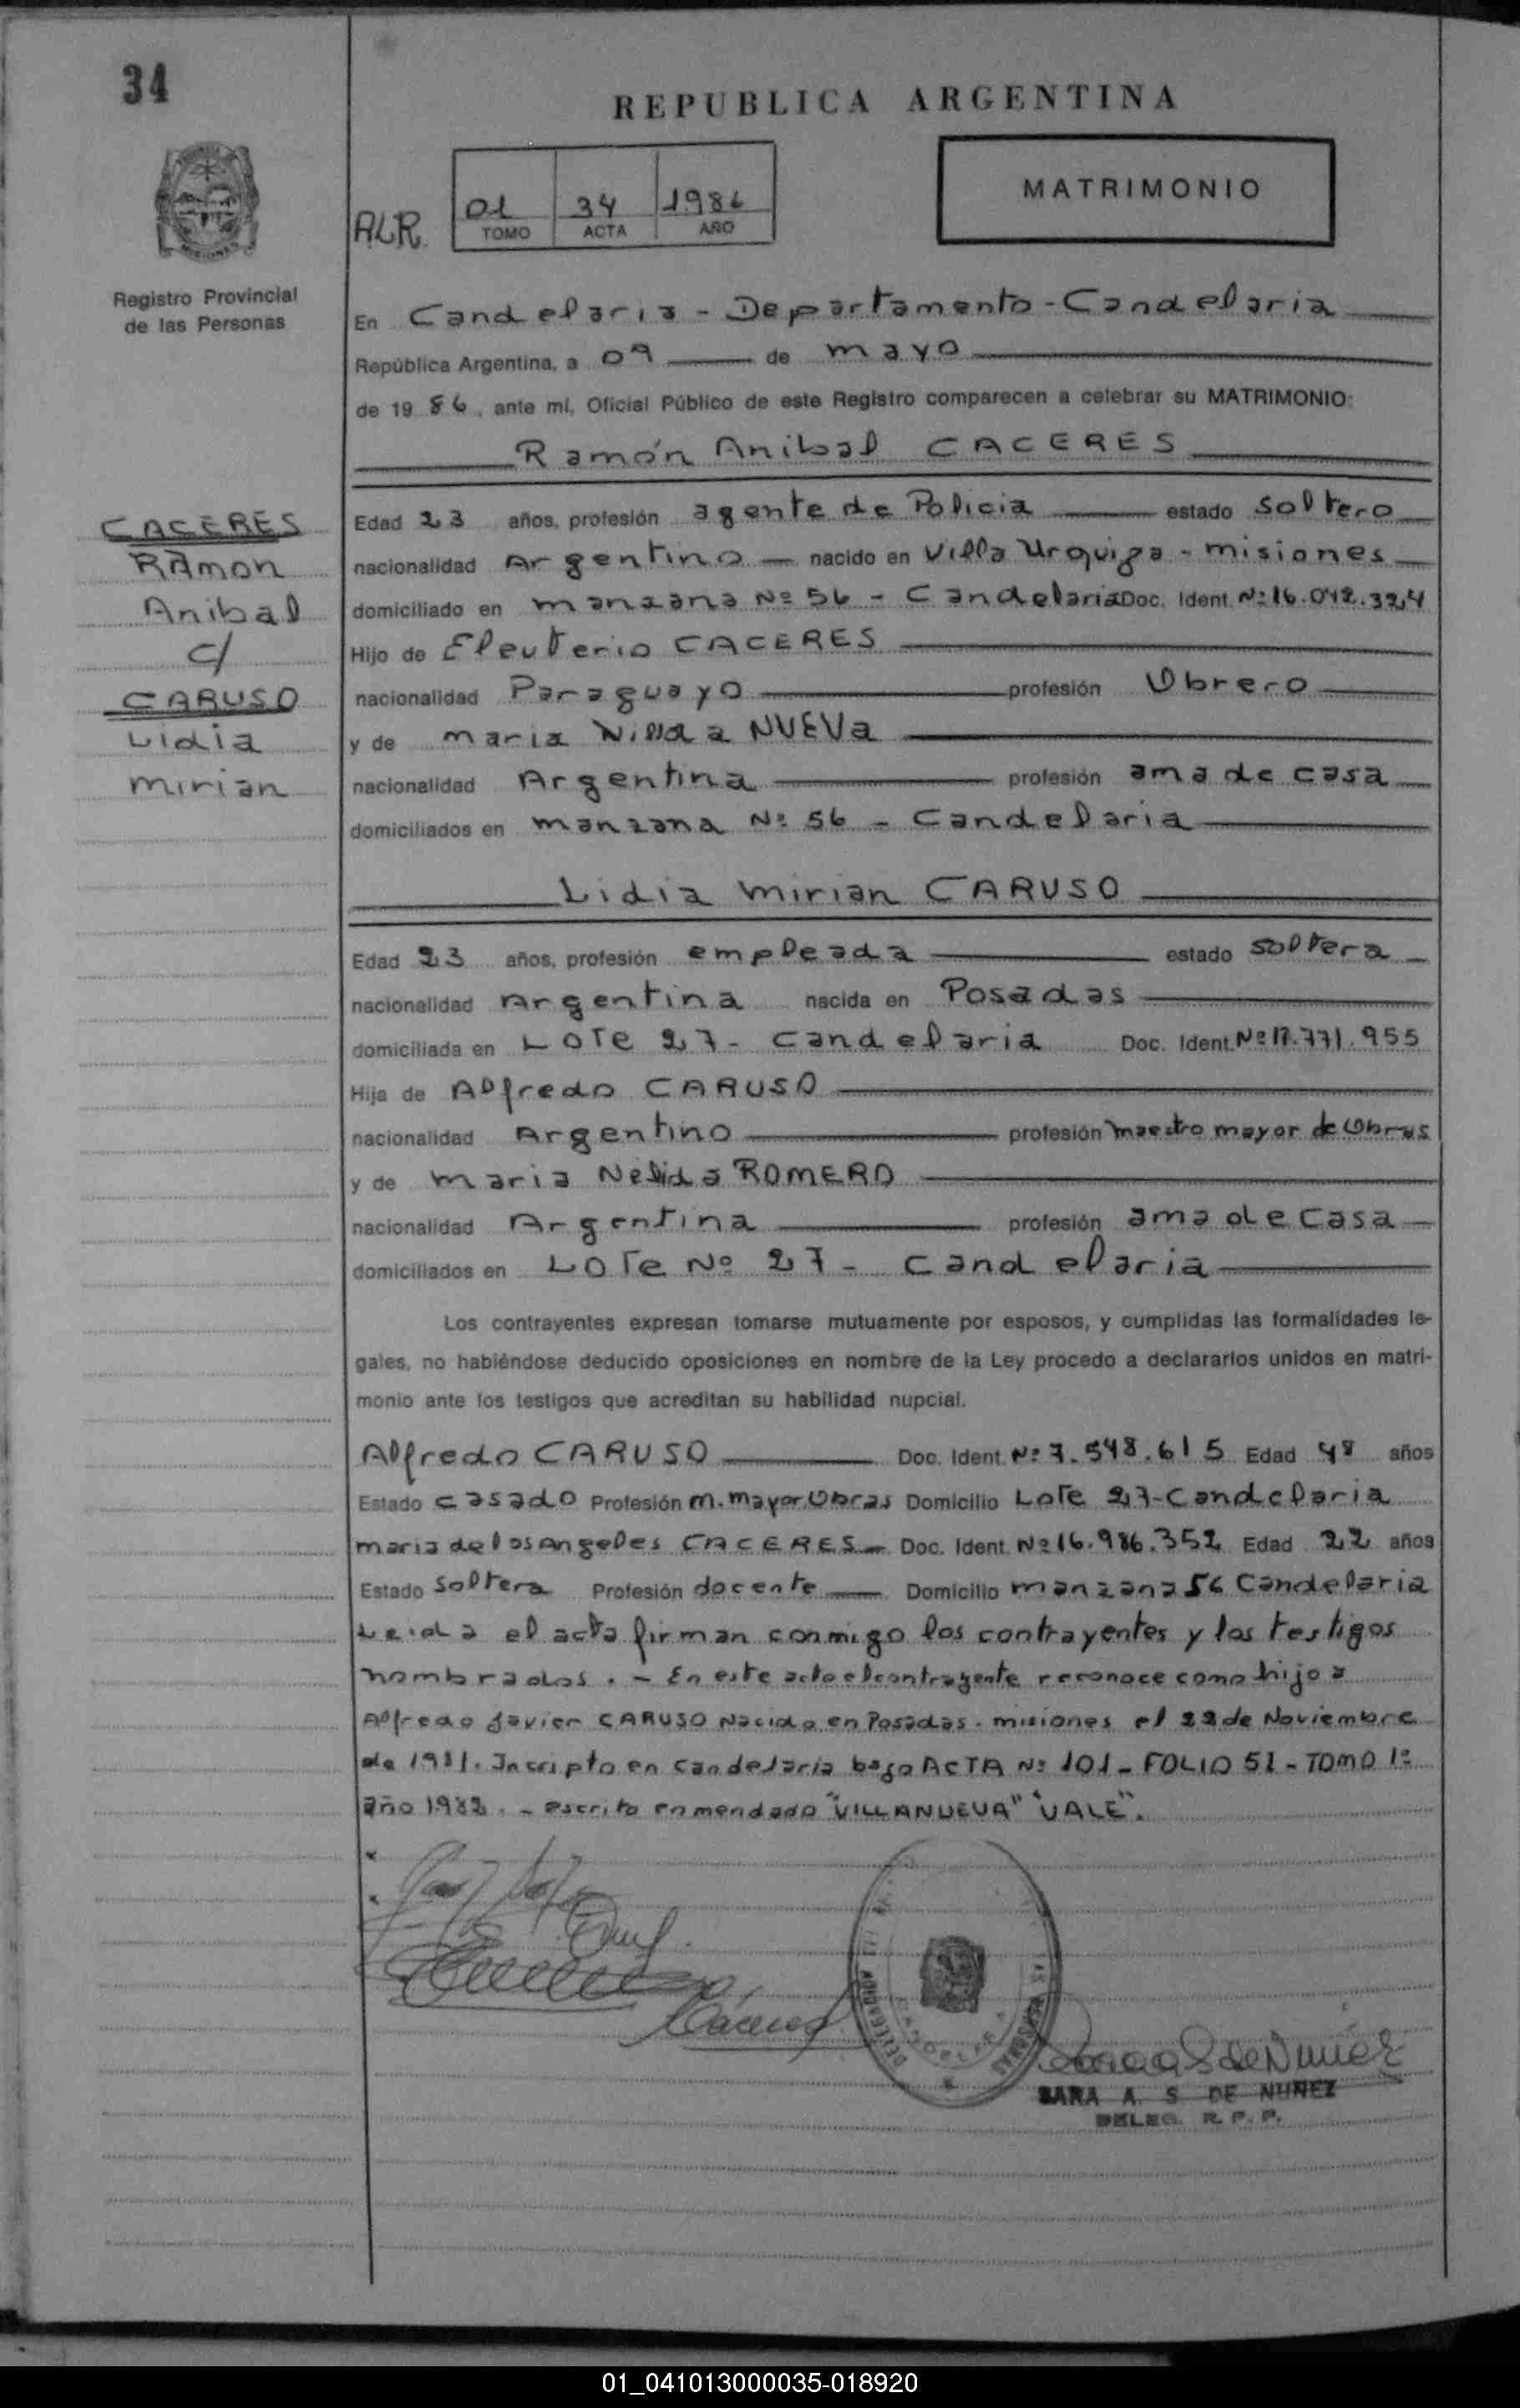 34
REPUBLICA ARGENTINA
MATRIMONIO
ALR. 01 34 1986
TOMO ACTA AÑO
Registro Provincial
de las Personas
En Candelaria - Departamento - Candelaria
República Argentina, a 09 de mayo
de 19 86, ante mí, Oficial Público de este Registro comparecen a celebrar su MATRIMONIO:
Ramón Anibal CACERES
CACERES
Ramon
Anibal
c/
CARUSO
Lidia
mirian
Edad 23 años, profesión agente de Policia estado soltero
nacionalidad Argentino nacido en Villa Urquiza - misiones
domiciliado en manzana Nº 56 - Candelaria Doc. Ident. Nº 16.042.324
Hijo de Eleuterio CACERES
nacionalidad Paraguayo profesión Obrero
y de maria NUEVA
nacionalidad Argentina profesión ama de casa
domiciliados en manzana Nº 56 - Candelaria
Lidia mirian CARUSO
Edad 23 años, profesión empleada estado soltera
nacionalidad Argentina nacida en Posadas
domiciliada en Lote 27 - Candelaria Doc. Ident. Nº 17.771.955
Hija de Alfredo CARUSO
nacionalidad Argentino profesión maestro mayor de Obras
y de maria Nelida ROMERO
nacionalidad Argentina profesión ama de casa
domiciliados en Lote Nº 27 - Candelaria
Los contrayentes expresan tomarse mutuamente por esposos, y cumplidas las formalidades le-
gales, no habiéndose deducido oposiciones en nombre de la Ley procedo a declararlos unidos en matri-
monio ante los testigos que acreditan su habilidad nupcial.
Alfredo CARUSO Doc. Ident. Nº 7.548.615 Edad 48 años
Estado casado Profesión m. mayor Obras Domicilio Lote 27 - Candelaria
maria de los Angeles CACERES - Doc. Ident. Nº 16.986.352 Edad 22 años
Estado soltera Profesión docente Domicilio manzana 56 Candelaria
Leida el acta firman conmigo los contrayentes y los testigos
nombrados. - En este acto el contrayente reconoce como hijo a
Alfredo Javier CARUSO Nacido en Posadas - misiones el 22 de Noviembre
de 1981. Inscripto en Candelaria bajo ACTA Nº 101 - FOLIO 51 - TOMO 1º
año 1982. - escrito enmendado "VILLANUEVA" "VALE".
Cáceres
Sara S de Nuñez
SARA A. S. DE NUÑEZ
DELEG. R. P. P.
01_041013000035-018920